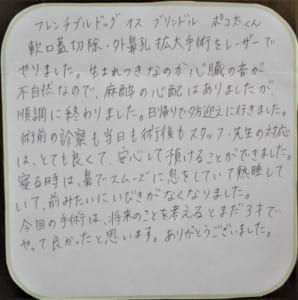 フレンチブルドッグ オス ブリンドル ポコ太くん
軟口蓋切除・外鼻孔拡大手術をレーザーで
やりました。生まれつきなのか心臓の音が
不自然なので、麻酔の心配はありましたが、
順調に終わりました。日帰りで夕方迎えに行きました。
術前の診察も当日も術後もスタッフ・先生の対応
は、とても良くて、安心して預けることができました。
寝る時は、鼻でスムーズに息をしていて熟睡して
いて、前みたいにいびきがなくなりました。
今回の手術は、将来のことを考えるとまだ3才で
やって良かったと思います。ありがとうございました。